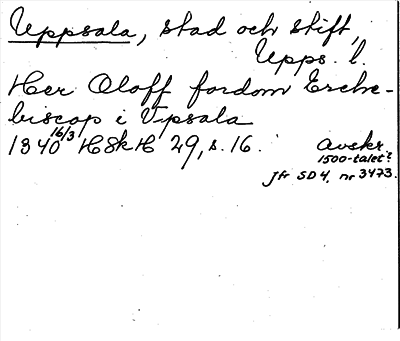 Uppsala, stad och stift,
Upps. l.
Her Oloff fordom Erche-
biscop i Vpsala
1340 16/3 HSkH 29, s. 16. Avskr.
1500-talet?
Jfr SD4, nr 3473.